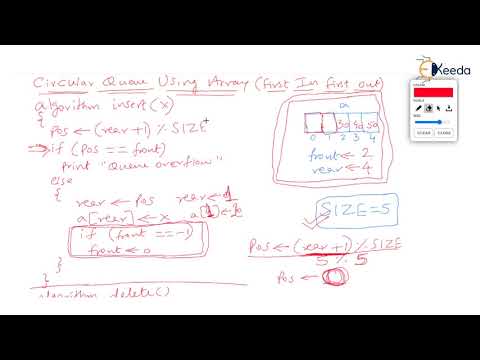 Circular Queue Using Array (First In First out)
algorithm insert(x)
{
pos ← (rear+1) % SIZE
if (pos == front)
print "Queue overflow"
else
{
rear ← pos rear ← 1
a[rear] ← x a[1] ←
if (front == -1)
front ← 0
}
}
algorithm delete()
a
30 40 50
0 1 2 3 4
front ← 2
rear ← 4
SIZE = 5
Pos ← (rear+1) % SIZE
5 % 5
Pos ← 0
EKeeda
CLEAR CLOSE